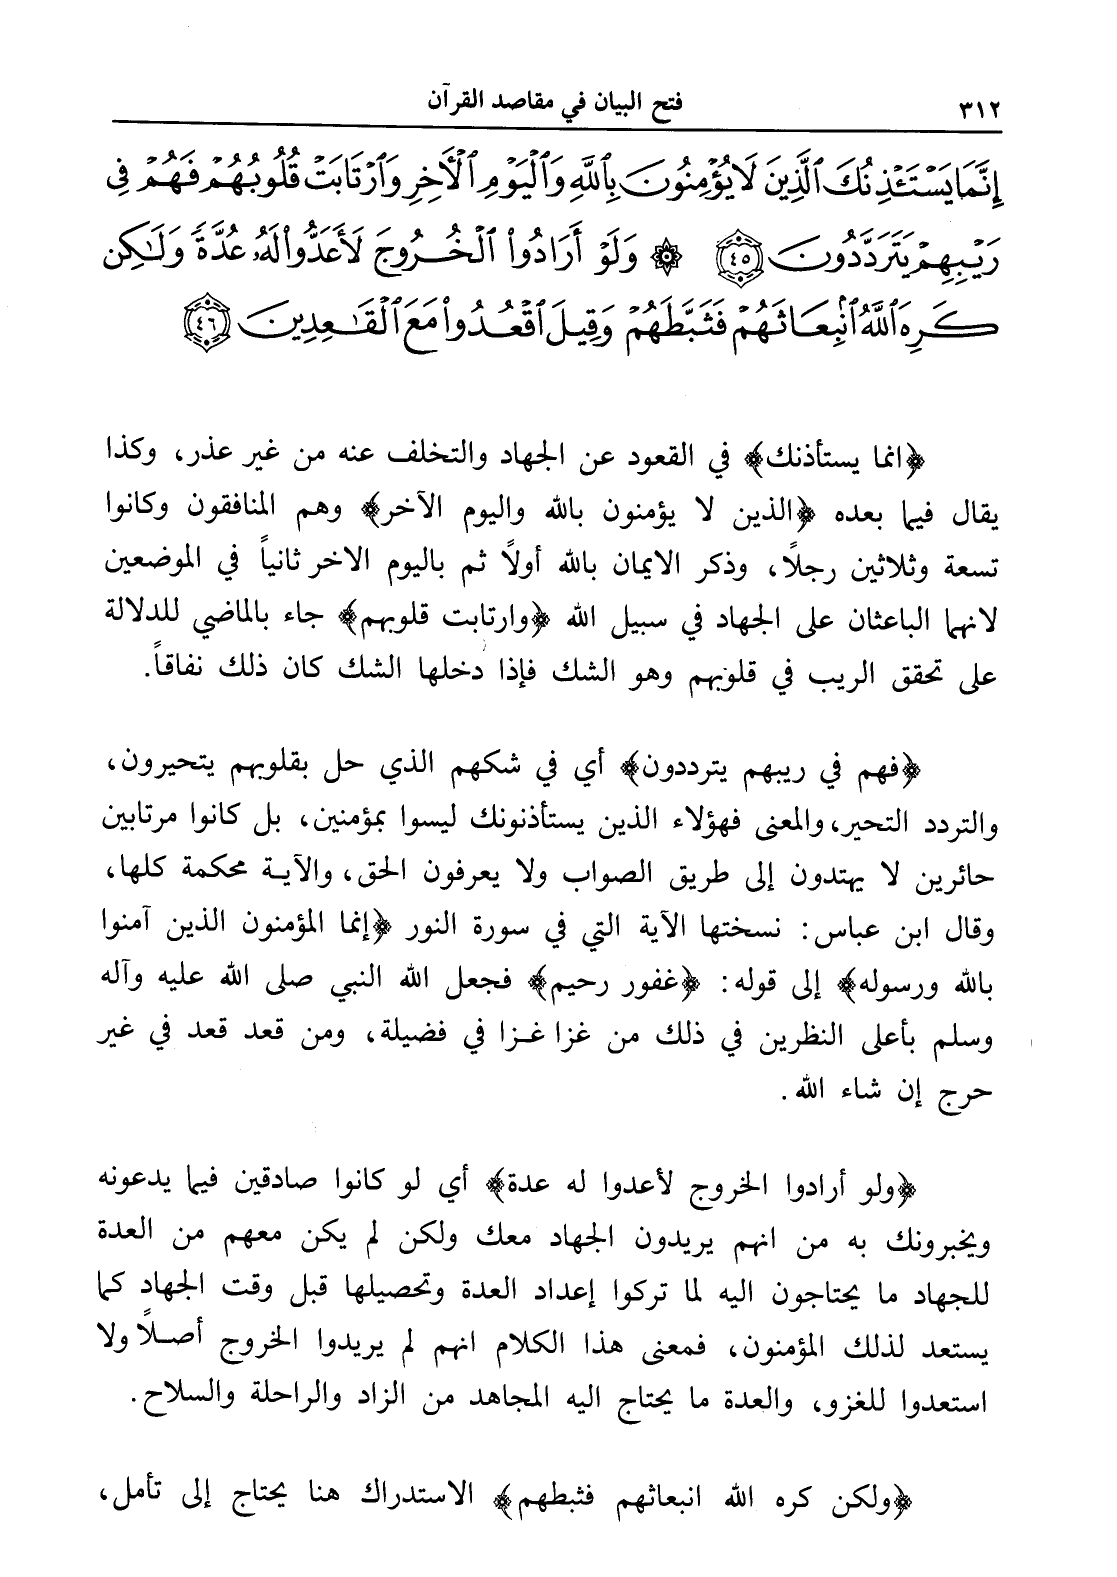 ٣١٢ فتح البيان في مقاصد القرآن
إِنَّمَا يَسْتَـْٔذِنُكَ ٱلَّذِينَ لَا يُؤْمِنُونَ بِٱللَّهِ وَٱلْيَوْمِ ٱلْأَخِرِ وَٱرْتَابَتْ قُلُوبُهُمْ فَهُمْ فِى
رَيْبِهِمْ يَتَرَدَّدُونَ ٤٥ ۞ وَلَوْ أَرَادُوا۟ ٱلْخُرُوجَ لَأَعَدُّوا۟ لَهُۥ عُدَّةً وَلَٰكِن
كَرِهَ ٱللَّهُ ٱنۢبِعَاثَهُمْ فَثَبَّطَهُمْ وَقِيلَ ٱقْعُدُوا۟ مَعَ ٱلْقَٰعِدِينَ ٤٦
﴿انما يستأذنك﴾ في القعود عن الجهاد والتخلف عنه من غير عذر، وكذا
يقال فيما بعده ﴿الذين لا يؤمنون بالله واليوم الآخر﴾ وهم المنافقون وكانوا
تسعة وثلاثين رجلاً، وذكر الايمان بالله أولاً ثم باليوم الاخر ثانياً في الموضعين
لانهما الباعثان على الجهاد في سبيل الله ﴿وارتابت قلوبهم﴾ جاء بالماضي للدلالة
على تحقق الريب في قلوبهم وهو الشك فإذا دخلها الشك كان ذلك نفاقاً.
﴿فهم في ريبهم يترددون﴾ أي في شكهم الذي حل بقلوبهم يتحيرون،
والتردد التحير، والمعنى فهؤلاء الذين يستأذنونك ليسوا بمؤمنين، بل كانوا مرتابين
حائرين لا يهتدون إلى طريق الصواب ولا يعرفون الحق، والآية محكمة كلها،
وقال ابن عباس: نسختها الآية التي في سورة النور ﴿إنما المؤمنون الذين آمنوا
بالله ورسوله﴾ إلى قوله: ﴿غفور رحيم﴾ فجعل الله النبي صلى الله عليه وآله
وسلم بأعلى النظرين في ذلك من غزا غـزا في فضيلة، ومن قعد قعد في غير
حرج إن شاء الله.
﴿ولو أرادوا الخروج لأعدوا له عدة﴾ أي لو كانوا صادقين فيما يدعونه
ويخبرونك به من انهم يريدون الجهاد معك ولكن لم يكن معهم من العدة
للجهاد ما يحتاجون اليه لما تركوا إعداد العدة وتحصيلها قبل وقت الجهاد كما
يستعد لذلك المؤمنون، فمعنى هذا الكلام انهم لم يريدوا الخروج أصـلاً ولا
استعدوا للغزو، والعدة ما يحتاج اليه المجاهد من الزاد والراحلة والسلاح.
﴿ولكن كره الله انبعاثهم فثبطهم﴾ الاستدراك هنا يحتاج إلى تأمل،